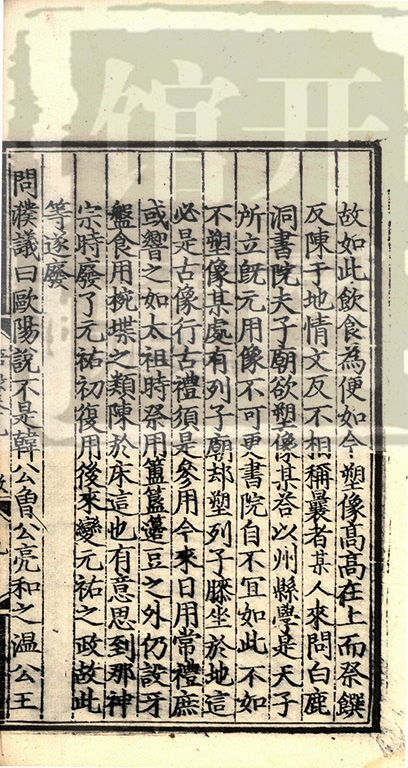 故如此飲食為便如今塑像高高在上而祭饌
反陳于地情文反不相稱曩者某人來問白鹿
洞書院夫子廟欲塑像某荅以州縣學是天子
所立旣元用像不可更書院自不冝如此不如
不塑像某處有列子廟却塑列子膝坐於地這
必是古像行古禮須是參用今來日用常禮庶
或響之如太祖時祭用簠簋籩豆之外仍設牙
盤食用椀楪之類陳於床這也有意思到那神
宗時廢了元祐初復用後來變元祐之政故此
等遂廢
問濮議曰歐陽說不是韓公魯公亮和之温公王